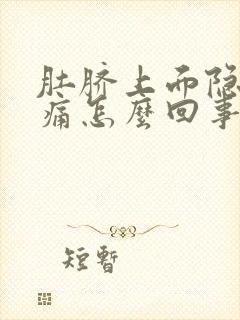 肚脐上而隐
痛怎麽回事
短暫